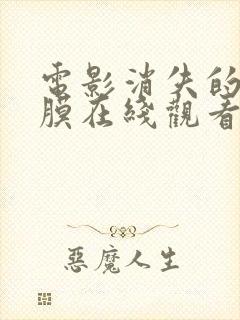 電影消失的
膜在綫觀看
惡魔人生